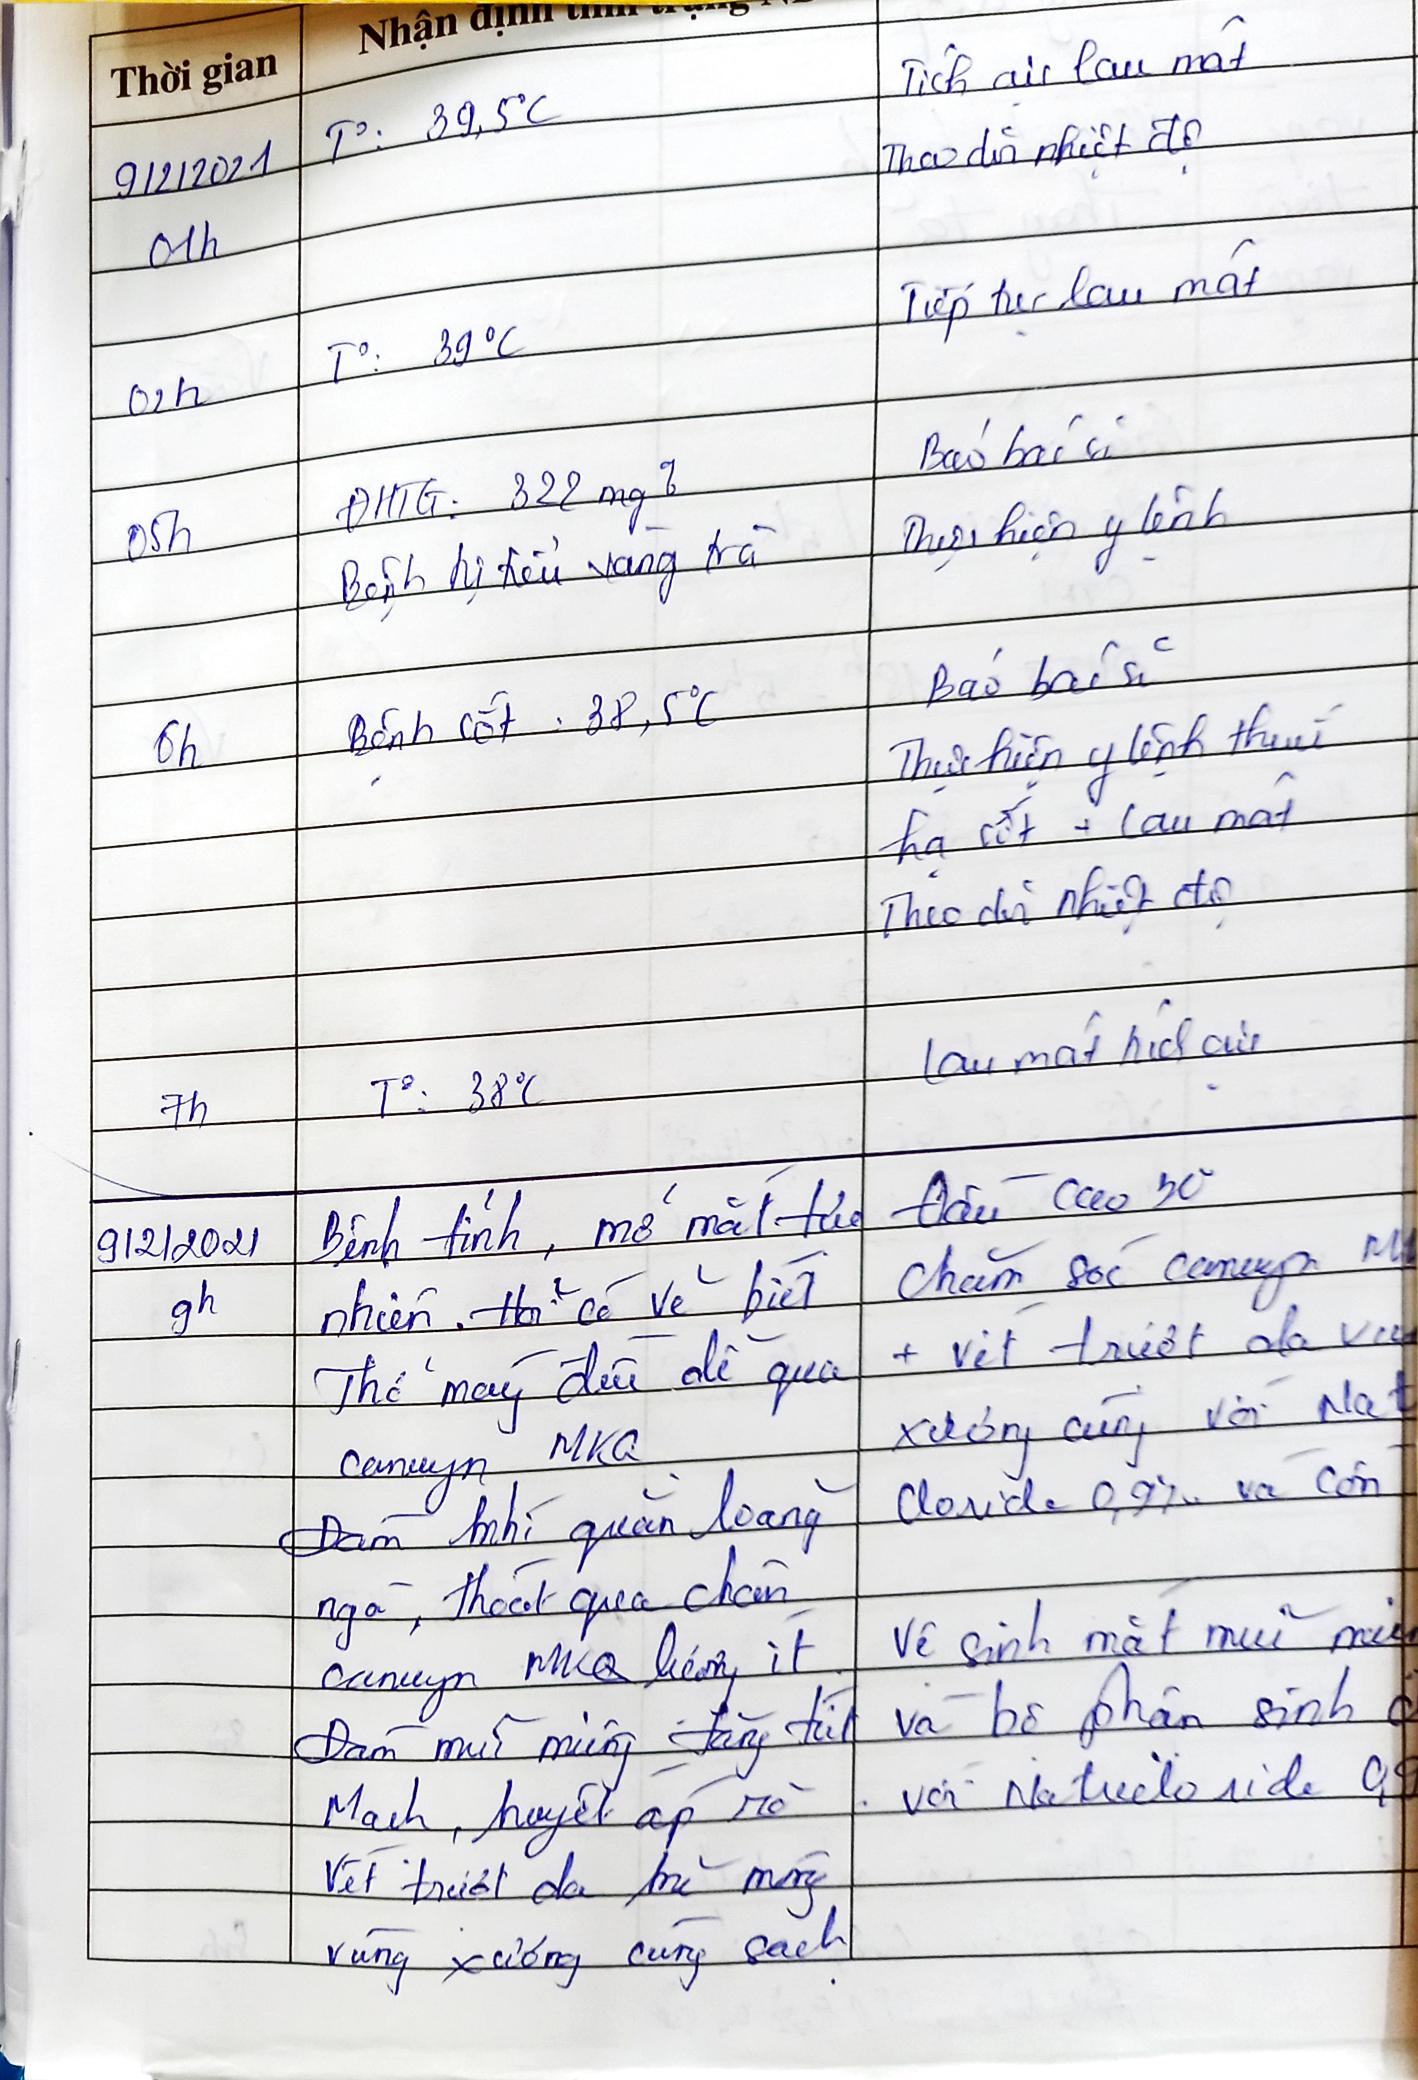 Thời gian
Nhận định tình trạng NB
Tích cực lau mát
9/2/2021
T°: 39,5°C
Theo dõi nhiệt độ
01h
02h
T°: 39°C
Tiếp tục lau mát
05h
ĐHTG: 322 mg%
Báo bác sĩ
Bệnh nhị tiểu vàng trà
Thực hiện y lệnh
6h
Bệnh sốt: 38,5°C
Báo bác sĩ
Thực hiện y lệnh thuốc
hạ sốt + lau mát
Theo dõi nhiệt độ
7h
T°: 38°C
Lau mát tích cực
9/2/2021
9h
Bệnh tỉnh, mở mắt tự
nhiên. có vẻ biết
Thở máy đều dễ qua
canuyn MKQ
Đàm khí quản loãng
ngà, thoát qua chân
canuyn MKQ lượng ít
Đàm mũi miệng trắng
Mạch, huyết áp rõ
Vết trượt da
vùng xương cùng sạch
Đầu cao 30°
Chăm sóc canuyn
+ vết trượt da
xương cùng với Nat
Cloride 0,9% và cồn
Vệ sinh mắt mũi
và bộ phận sinh
với Natricloride 0,9